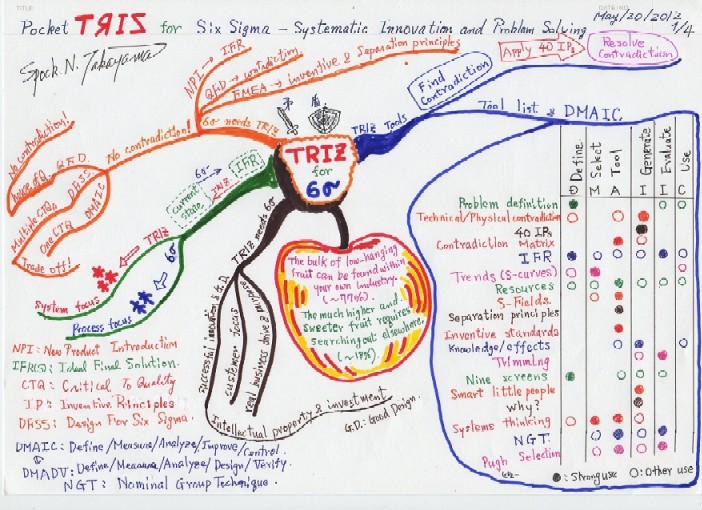 Pocket TRIZ for Six Sigma – Systematic Innovation and Problem Solving
May/20/2012
1/4
Spock N. Takayama
Apply 40 IPs
Resolve
Contradiction
Find
Contradiction
NPI → IFR
QFD → contradiction
FMEA → inventive & Separation principles
6σ needs TRIZ
No contradiction!
No contradiction!
Q.F.D.
DFSS
DMAIC
Multiple CTQs
One CTQ
Trade off!
TRIZ
for
6σ
TRIZ Tools
Tool list & DMAIC
IFR
6σ
TRIZ
current
state
TRIZ
6σ
System focus
Process focus
TRIZ needs 6σ
Successful innovation & G.D.
customer focus
real business drive &
purpose
Intellectual property & investment
G.D.: Good Design.
The bulk of low-hanging
fruit can be found within
your own industry.
The much higher and
sweeter fruit requires
searching out elsewhere.
Define
Select
Tool
Generate
Evaluate
Use
D M A I I C
Problem definition
Technical/Physical contradiction
40 IPs
Contradiction Matrix
IFR
Trends (S-curves)
Resources
S-Fields
Separation principles
Inventive standards
Knowledge/effects
Trimming
Nine screens
Smart little people
why?
Systems thinking
NGT
Pugh Selection
●: Strong use ○: Other use
NPI: New Product Introduction
: Ideal Final Solution.
CTQ: Critical To Quality
IP: Inventive Principles
DFSS: Design For Six Sigma.
DMAIC: Define/Measure/Analyze/Improve/Control.
DMADV: Define/Measure/Analyze/Design/Verify.
NGT: Nominal Group Technique.